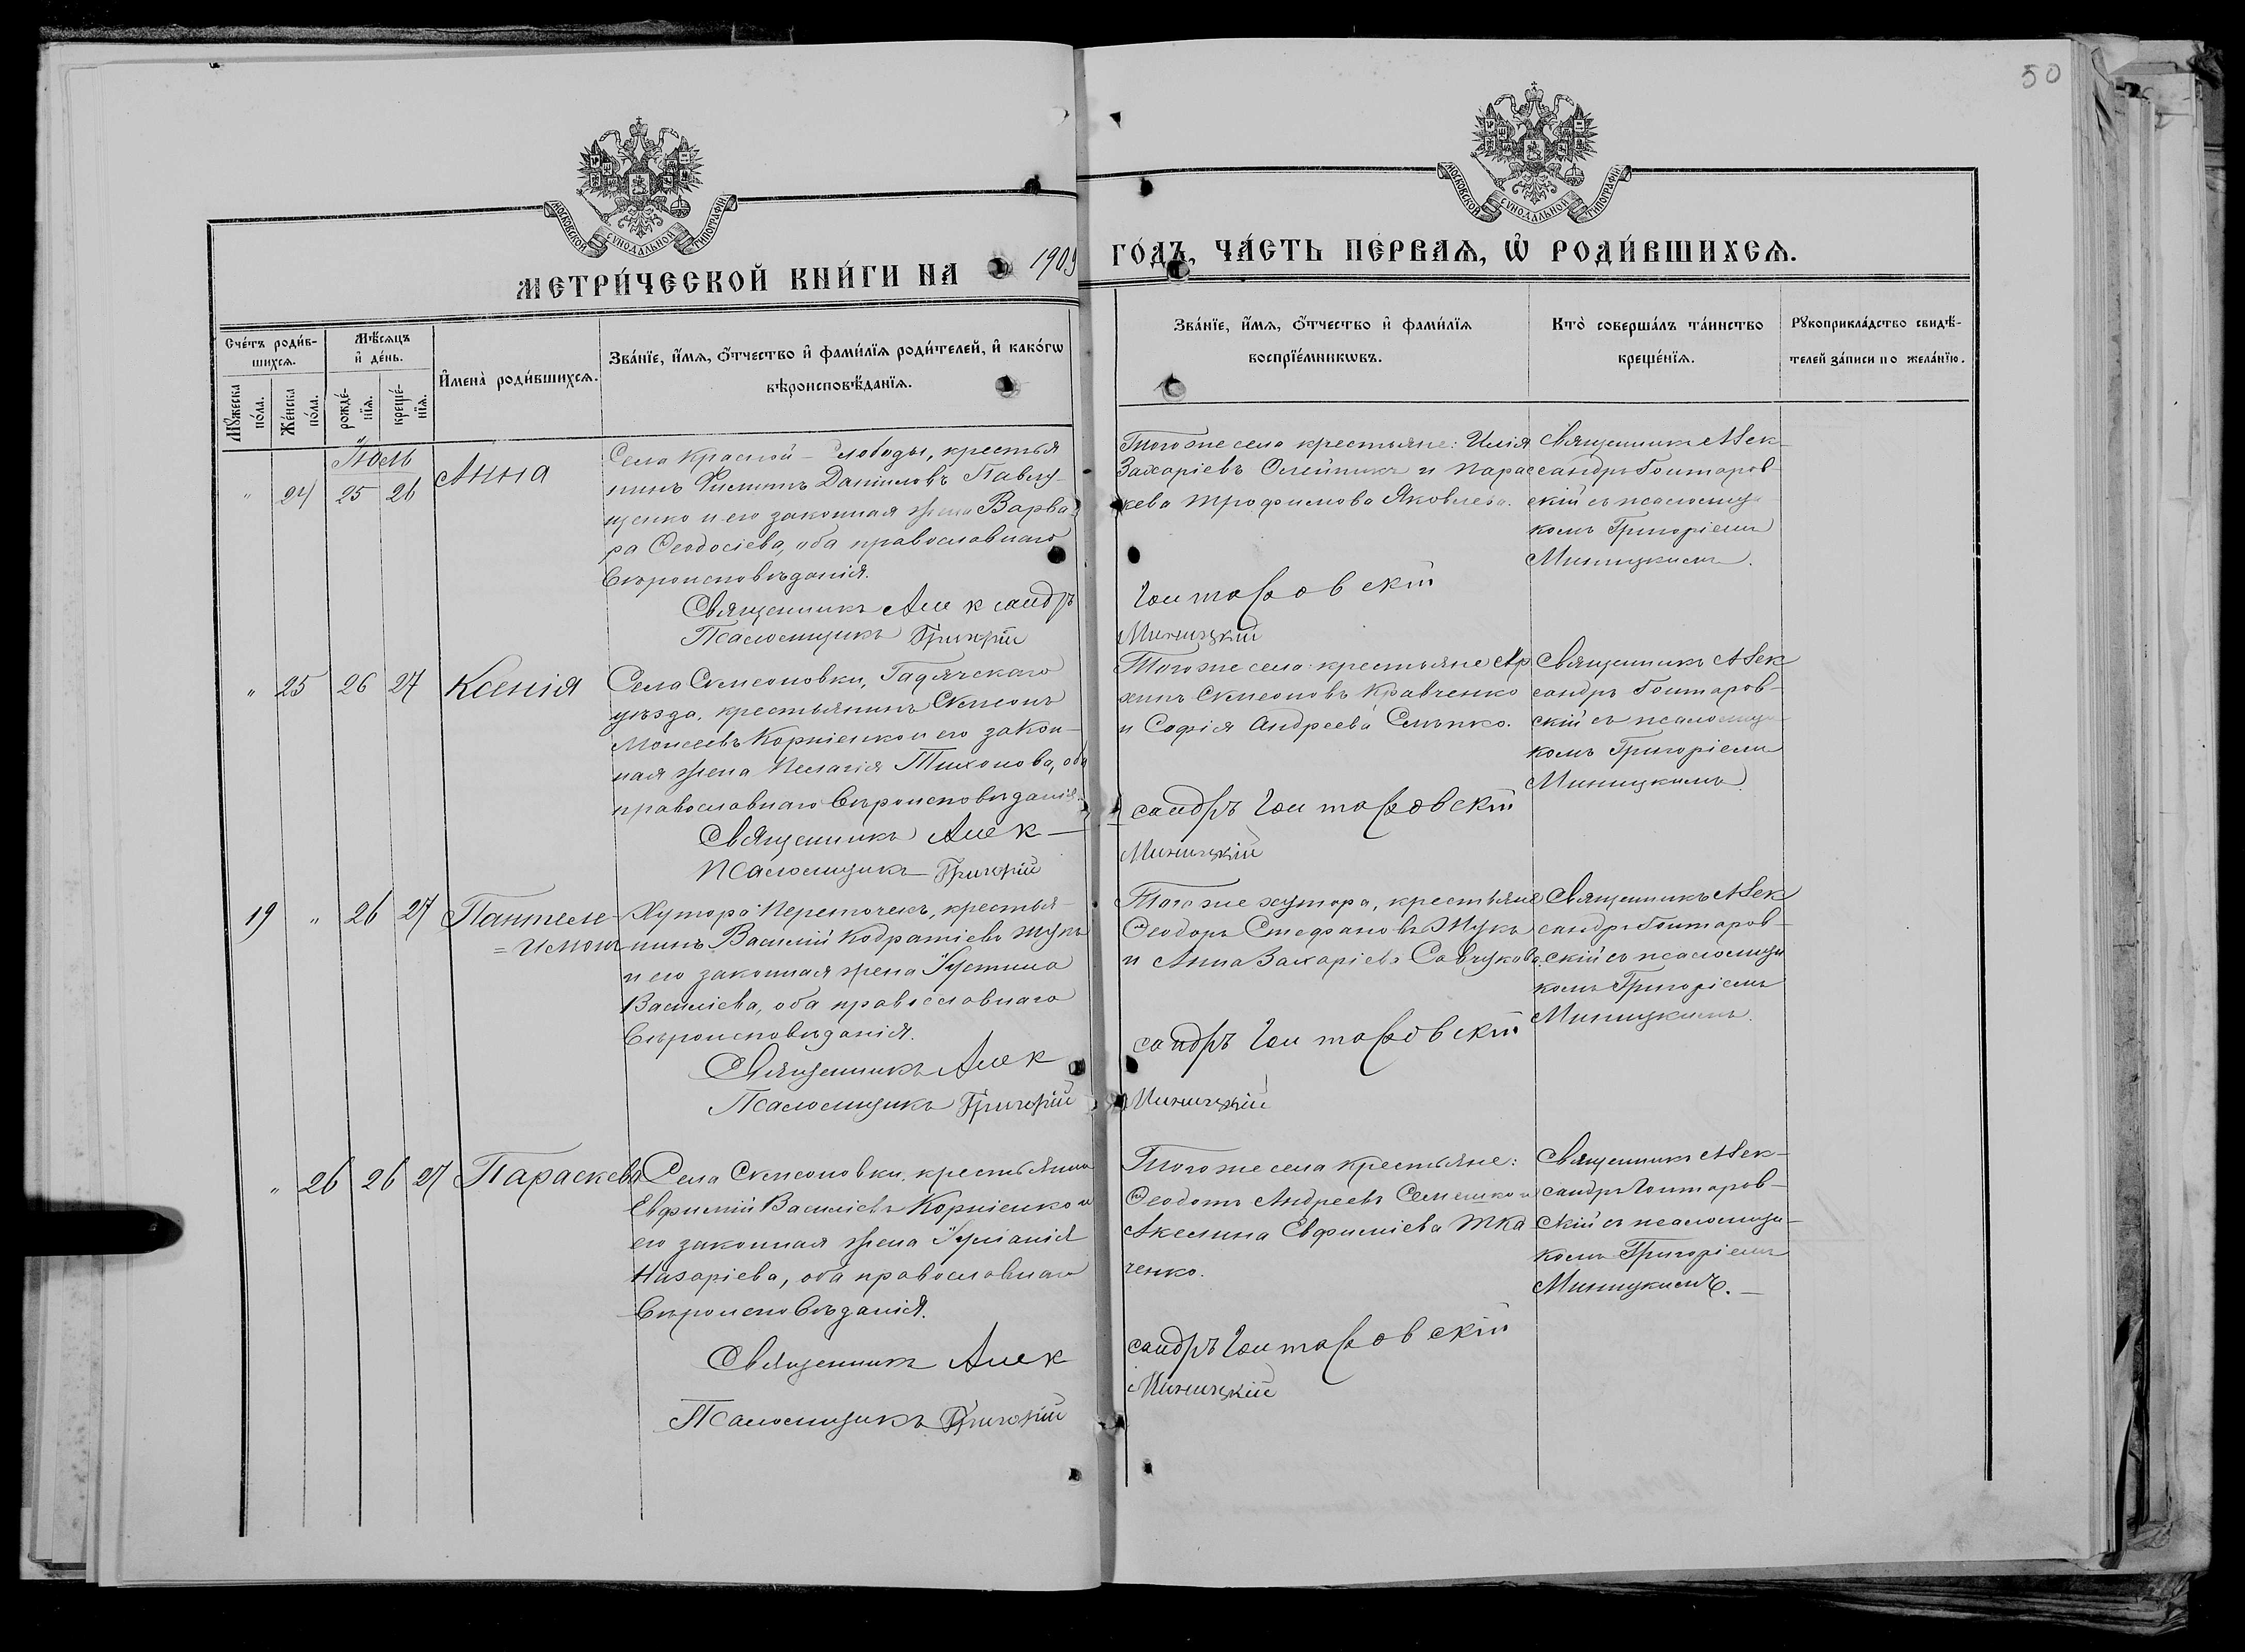 50
МОСКОВСКОЙ СѴНОДАЛЬНОЙ ТИПОГРАФІИ
МОСКОВСКОЙ СѴНОДАЛЬНОЙ ТИПОГРАФІИ
МЕТРИ́ЧЕСКОЙ КНИ́ГИ НА 1909
ГО́ДЪ, ЧА́СТЬ ПЕ́РВАѦ, Ѽ РОДИ́ВШИХСѦ.
Сче́тъ роди́в-
шихсѧ.
Мꙋ́жеска по́ла.
Же́нска по́ла.
Мѣ́сѧцъ
и҆ де́нь.
рожде́-
нїѧ.
креще́-
нїѧ.
И҆мена̀ роди́вшихсѧ.
Зва́нїе, и҆́мѧ, ѻ҆́тчество и҆ фами́лїѧ роди́телей, и҆ како́гѡ
вѣроисповѣ́данїѧ.
Зва́нїе, и҆́мѧ, ѻ҆́тчество и҆ фами́лїѧ
воспрїе́мникѡвъ.
Кто̀ соверша́лъ та́инство
креще́нїѧ.
Рꙋкоприкла́дство свидѣ́-
телей за́писи по жела́нїю.
Іюль
" 24 25 26 Анна
Села Красной-Слободы, крестья
нинъ Филиппъ Даніиловъ Павлу-
щенко и его законная жена Варва-
ра Ѳеодосіева, оба православнаго
вѣроисповѣданія.
Священникъ Александръ
Псаломщикъ Григорій
Того же села крестьяне: Илія
Захаріевъ Олейникъ и Парас
кева Трофимова Яковлева.
Гонтаровскій
Миницкій
Священникъ Алек-
сандръ Гонтаров-
скій съ псаломщи
комъ Григоріемъ
Миницкимъ.
" 25 26 27 Ксенія
Села Симеоновки, Гадячскаго
уѣзда, крестьянинъ Симеонъ
Моисеевъ Корніенко и его закон-
ная жена Пелагія Тихонова, оба
православнаго вѣроисповѣданія.
Священникъ Алек-
Псаломщикъ Григорій
Того же села крестьяне Ар
хипъ Симеоновъ Кравченко
и Софія Андреева Семѣнко.
сандръ Гонтаровскій
Миницкій
Священникъ Алек
сандръ Гонтаров-
скій съ псаломщи
комъ Григоріемъ
Миницкимъ.
19 " 26 27 Пантеле-
=имонъ
Хутора Переточекъ, крестья-
нинъ Василій Кодратіевъ Жукъ
и его законная жена Іустина
Василіева, оба православнаго
вѣроисповѣданія.
Священникъ Алек
Псаломщикъ Григорій
Того же хутора, крестьяне
Ѳеодоръ Стефановъ Жукъ
и Анна Захаріева Савчукова.
сандръ Гонтаровскій
Миницкій
Священникъ Алек
сандръ Гонтаров-
скій съ псаломщи
комъ Григоріемъ
Миницкимъ.
" 26 26 27 Параскева
Села Симеоновки, крестьянинъ
Евфимій Василіевъ Корніенко и
его законная жена Іуліанія
Назаріева, оба православнаго
вѣроисповѣданія.
Священникъ Алек
Псаломщикъ Григорій
Того же села крестьяне:
Ѳеодотъ Андреевъ Семешко и
Акелина Евфиміева Тка
ченко.
сандръ Гонтаровскій
Миницкій
Священникъ Алек-
сандръ Гонтаров-
скій съ псаломщи-
комъ Григоріемъ
Миницкимъ.